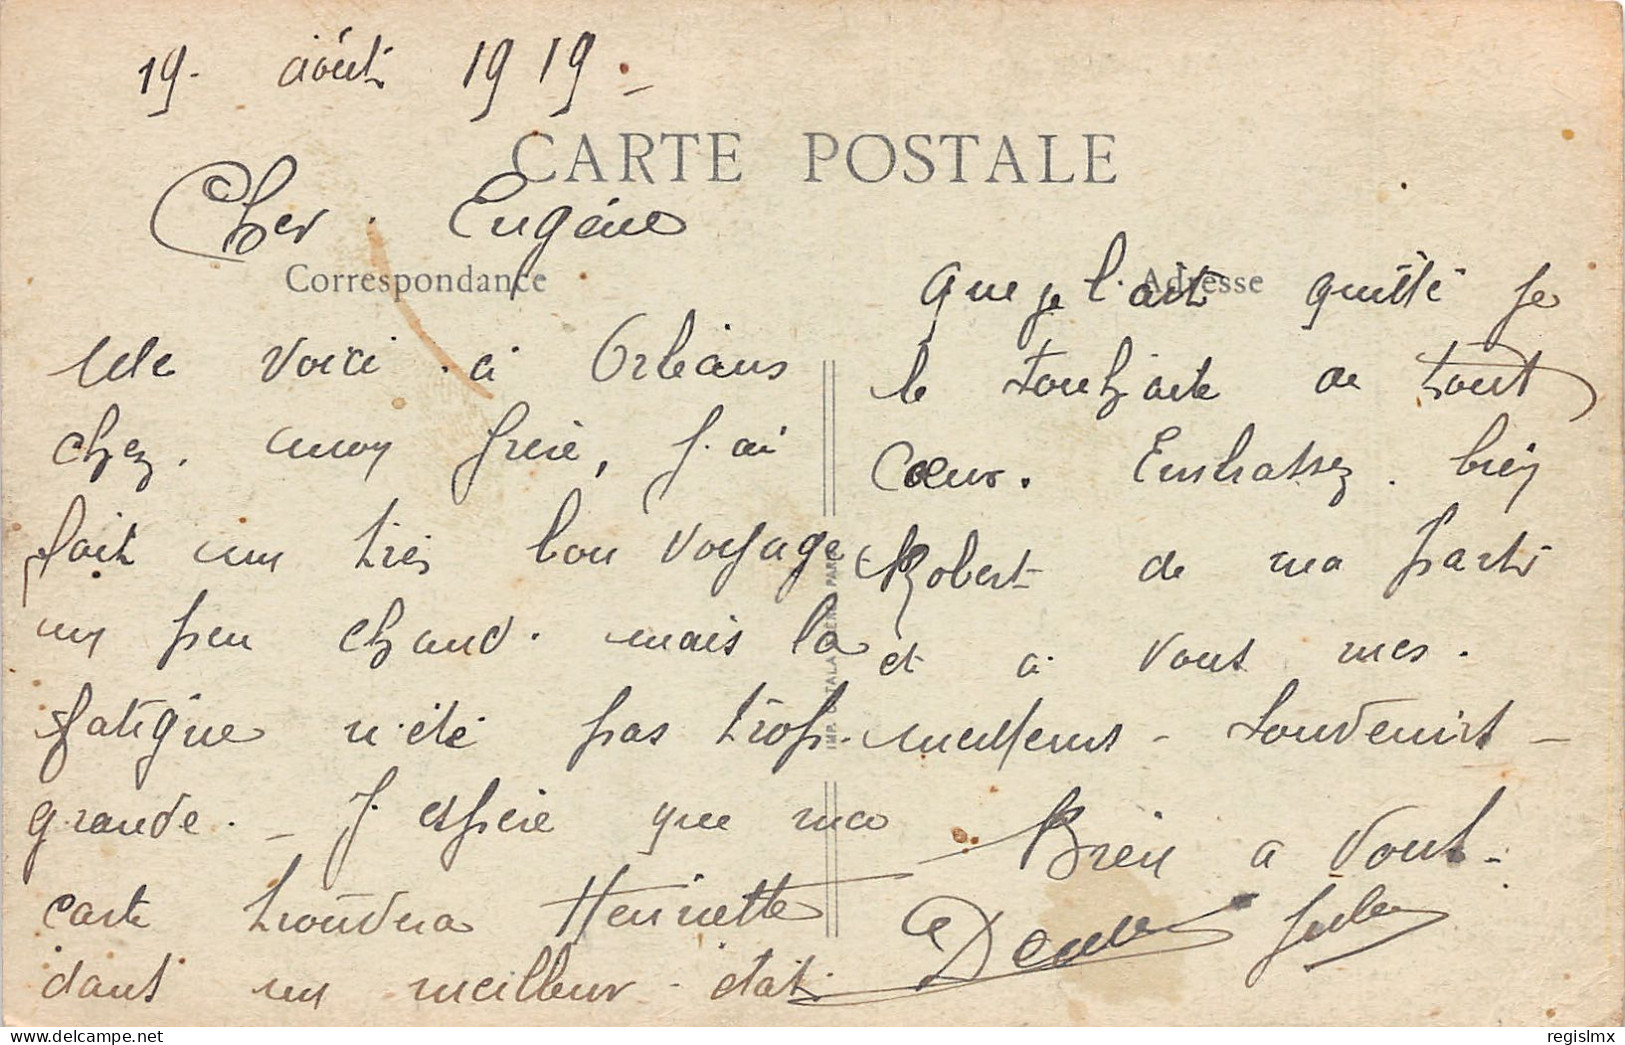 19. août 1919.
CARTE POSTALE
Cher Eugène
Correspondance
Me voici à Orléans
chez mon frère, j'ai
fait un très bon voyage
un peu chaud. mais la
fatigue n'été pas trop
grande. _ J'espère que ma
carte trouvera Henriette
dans un meilleur état
Adresse
que je l'ait quitté je
le souhaite de tout
Cœur. Embrassez bien
Robert de ma part
et a vous mes.
meilleurs - souvenirs -
Bien a Vous -
IMP. CATALA FRÈRES PARIS
regislmx